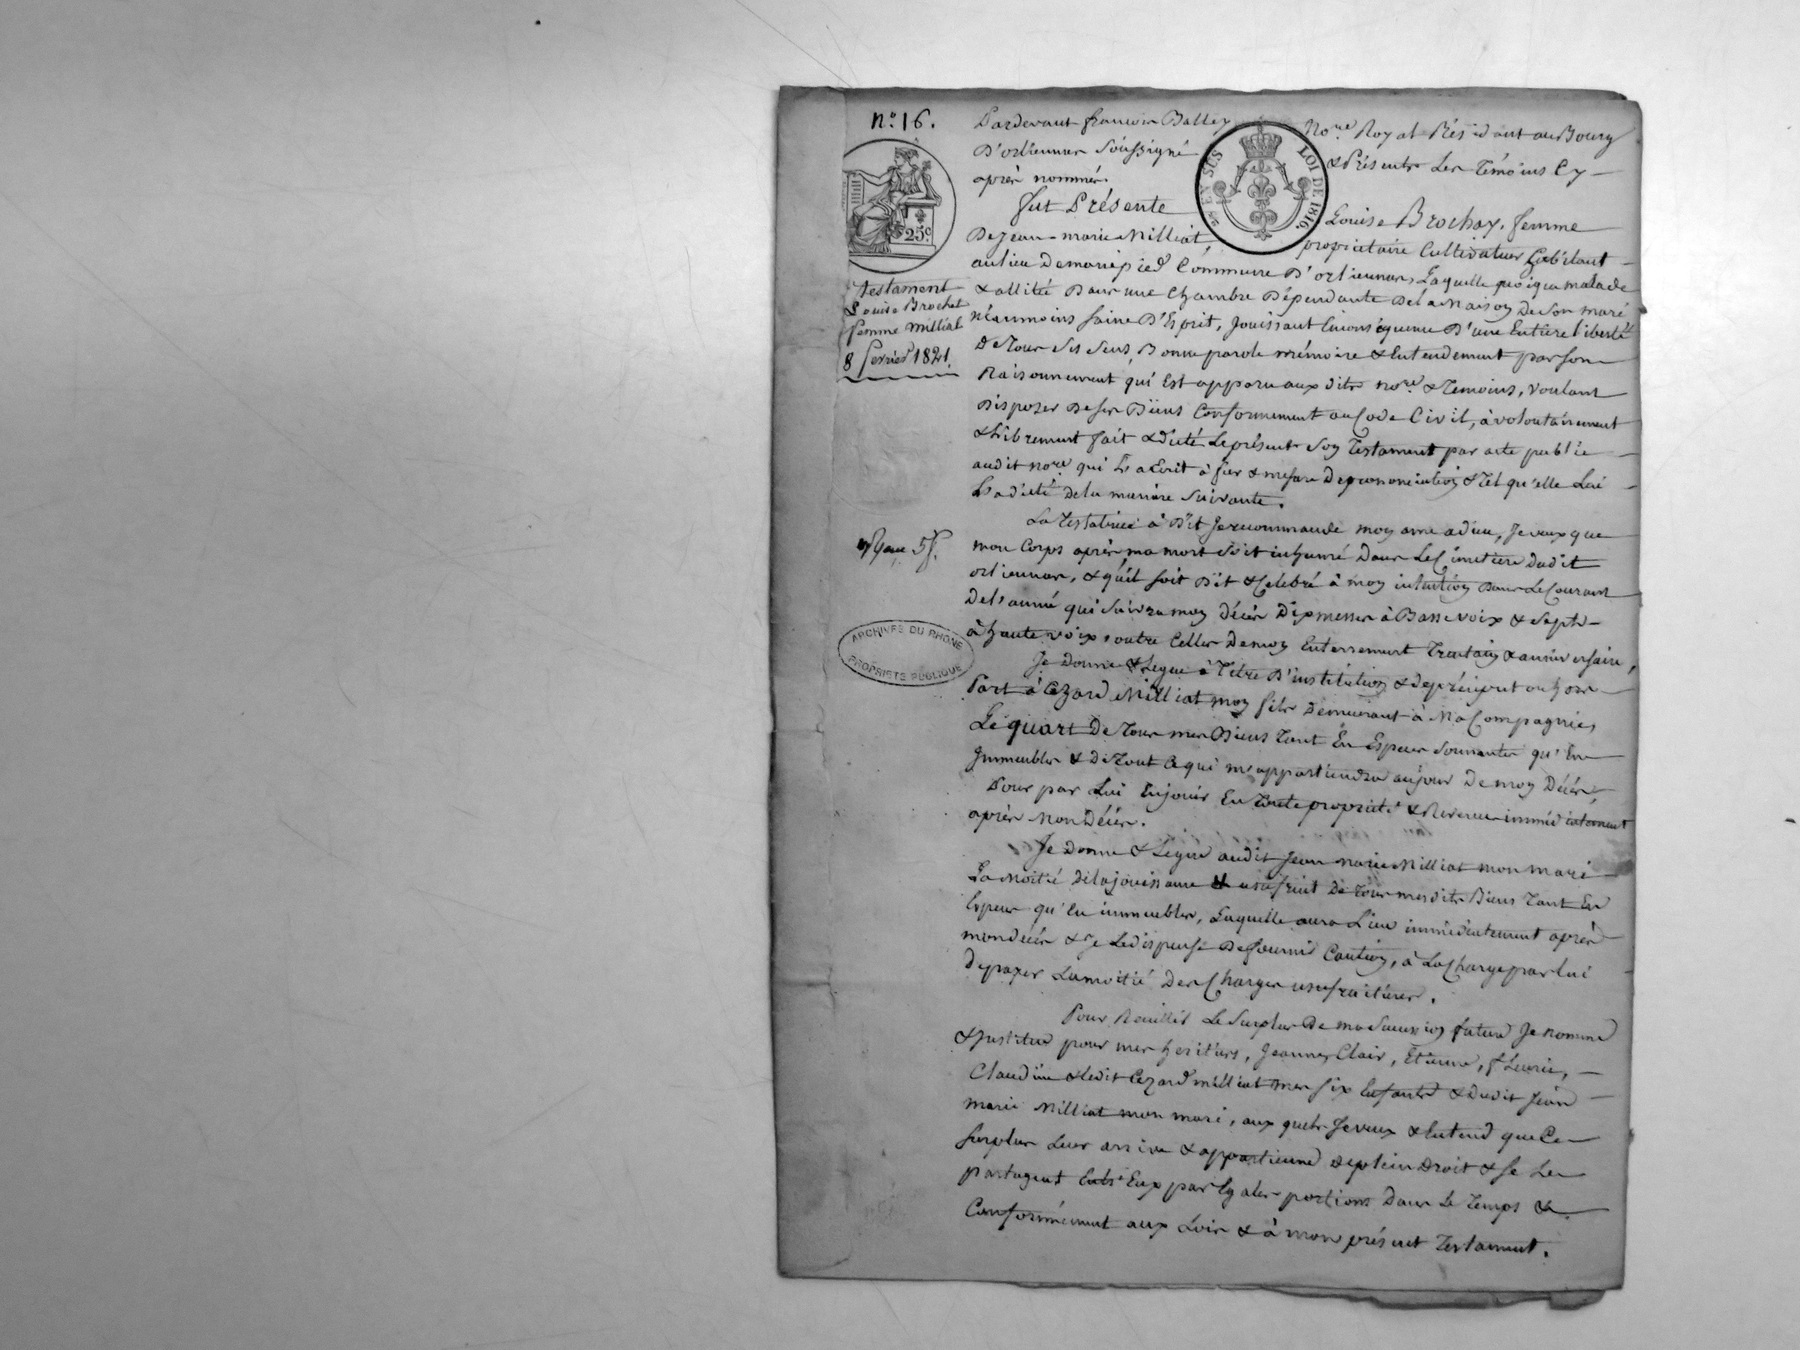 n.° 16.
25c
2me EN SUS LOI DE 1816.
testament
Louise Brochet
femme Milliat
8 fevrier 1821.
5f.
ARCHIVES DU RHONE
PROPRIÉTÉ PUBLIQUE
Pardevant francois Balley Nore. Royal Résidant au Bourg
D'orlienas soussigné & Présents Les Témoins Cy
après nommés.
Fut Présente Louise Brochay, femme
De jean-marie Milliat, propriétaire Cultivateur habitant
au lieu De marie pied Commune D'orlienas, Laquelle quoique malade
& allitée Dans une Chambre Dépendante De la Maison De Son mari
néanmoins saine D'Esprit, Jouissant Consequence D'une Entiere liberté
De Tous Ses Sens, Bonne parole mémoire & Entendement par son
Raisonnement qui Est apparu aux dits nore. & Temoins, voulant
Disposer De ses Biens Conformement au Code Civil, à volontairement
& Librement fait & dicté Le présent Son Testament par acte public
audit nore. qui L'a Ecrit à fur & mesure De prononciation & Tel qu'elle Lui
L'a dicté de la manière Suivante.
La Testatrice à Dit Je recommande mon ame a dieu, Je veux que
mon Corps après ma mort Soit inhumé Dans Le Cimetiere dudit
orlienas, & qu'il soit Dit & Célébré à mon intention Dans Le Courant
De l'année qui Suivra mon décès Dix messes à Basse voix & sept
à haute voix, outre Celles De mon Enterrement Trentain & anniversaire,
Je Donne & Legue à Titre D'institution & de préciput ou hors
Part à Cezard Milliat mon fils Demeurant à Ma Compagnie,
Le quart De Tous mes Biens Tant En Especes Sonnantes qu'En
Immeubles & De Tout Ce qui m'appartiendra au jour De mon Décès,
Pour par Lui En jouir En Toute propriété & Revenu immédiatement
après Mon Décès.
Je Donne & Legue audit Jean Marie Milliat mon mari
La Moitié De la jouissance & usufruit De Tous mesdits Biens Tant En
Especes qu'En immeubles, Laquelle aura Lieu immédiatement après
mon décès & Je Le dispense De fournir Caution, à La Charge par lui
De payer La moitié Des Charges usufruitieres.
Pour Recuillir Le Surplus De ma Succession future Je nomme
& Institue pour mes héritiers, Jeanne, Clair, Etienne, fleurie,
Claudine & ledit Cezard milliat mes six Enfants & Dudit Jean
marie Milliat mon mari, aux quels Je veux & Entend que Ce
surplus Leur arrive & appartienne De plein Droit & se Le
partagent Entr'Eux par Egales portions Dans Le Temps &
Conformément aux Lois & à mon présent Testament.